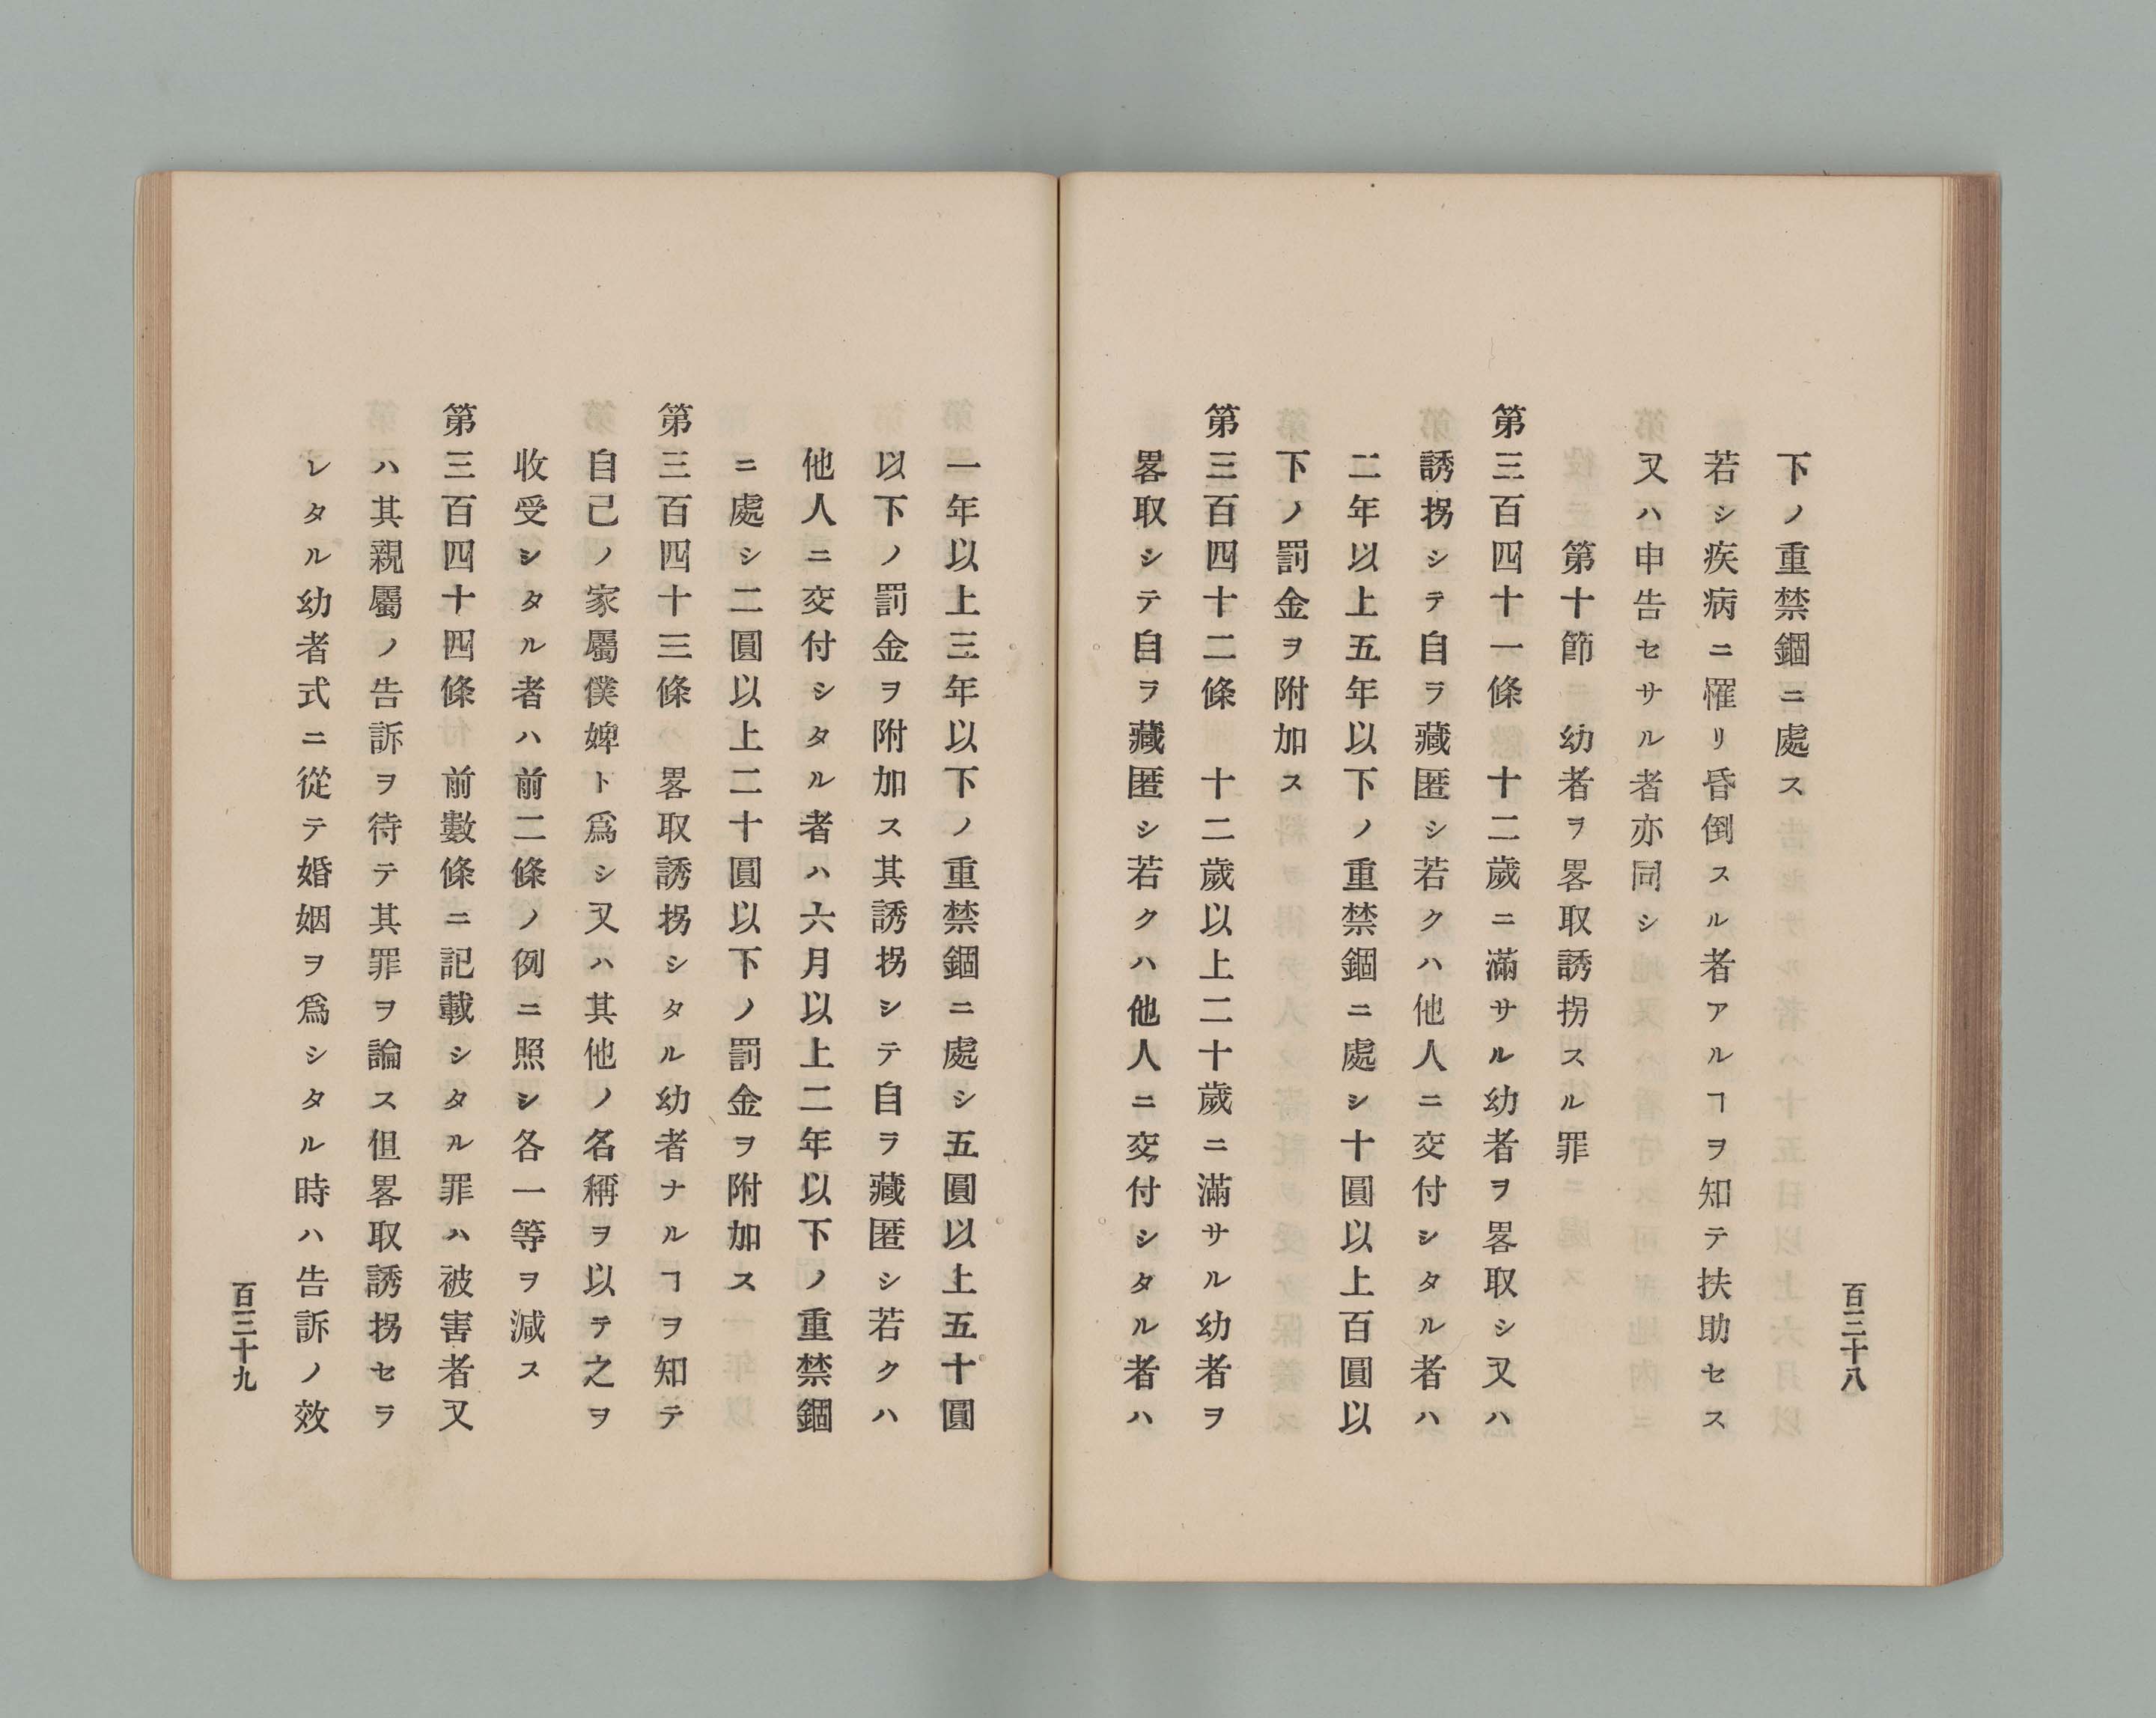 下ノ重禁錮ニ處ス
若シ疾病ニ罹リ昏倒スル者アルヿヲ知テ扶助セス
又ハ申告セサル者亦同シ
第十節　幼者ヲ畧取誘拐スル罪
第三百四十一條　十二歲ニ滿サル幼者ヲ畧取シ又ハ
誘拐シテ自ラ藏匿シ若クハ他人ニ交付シタル者ハ
二年以上五年以下ノ重禁錮ニ處シ十圓以上百圓以
下ノ罰金ヲ附加ス
第三百四十二條　十二歲以上二十歲ニ滿サル幼者ヲ
畧取シテ自ラ藏匿シ若クハ他人ニ交付シタル者ハ
百三十八
一年以上三年以下ノ重禁錮ニ處シ五圓以上五十圓
以下ノ罰金ヲ附加ス其誘拐シテ自ラ藏匿シ若クハ
他人ニ交付シタル者ハ六月以上二年以下ノ重禁錮
ニ處シ二圓以上二十圓以下ノ罰金ヲ附加ス
第三百四十三條　畧取誘拐シタル幼者ナルヿヲ知テ
自己ノ家屬僕婢ト爲シ又ハ其他ノ名稱ヲ以テ之ヲ
收受シタル者ハ前二條ノ例ニ照シ各一等ヲ減ス
第三百四十四條　前數條ニ記載シタル罪ハ被害者又
ハ其親屬ノ告訴ヲ待テ其罪ヲ論ス但畧取誘拐セラ
レタル幼者式ニ從テ婚姻ヲ爲シタル時ハ告訴ノ效
百三十九